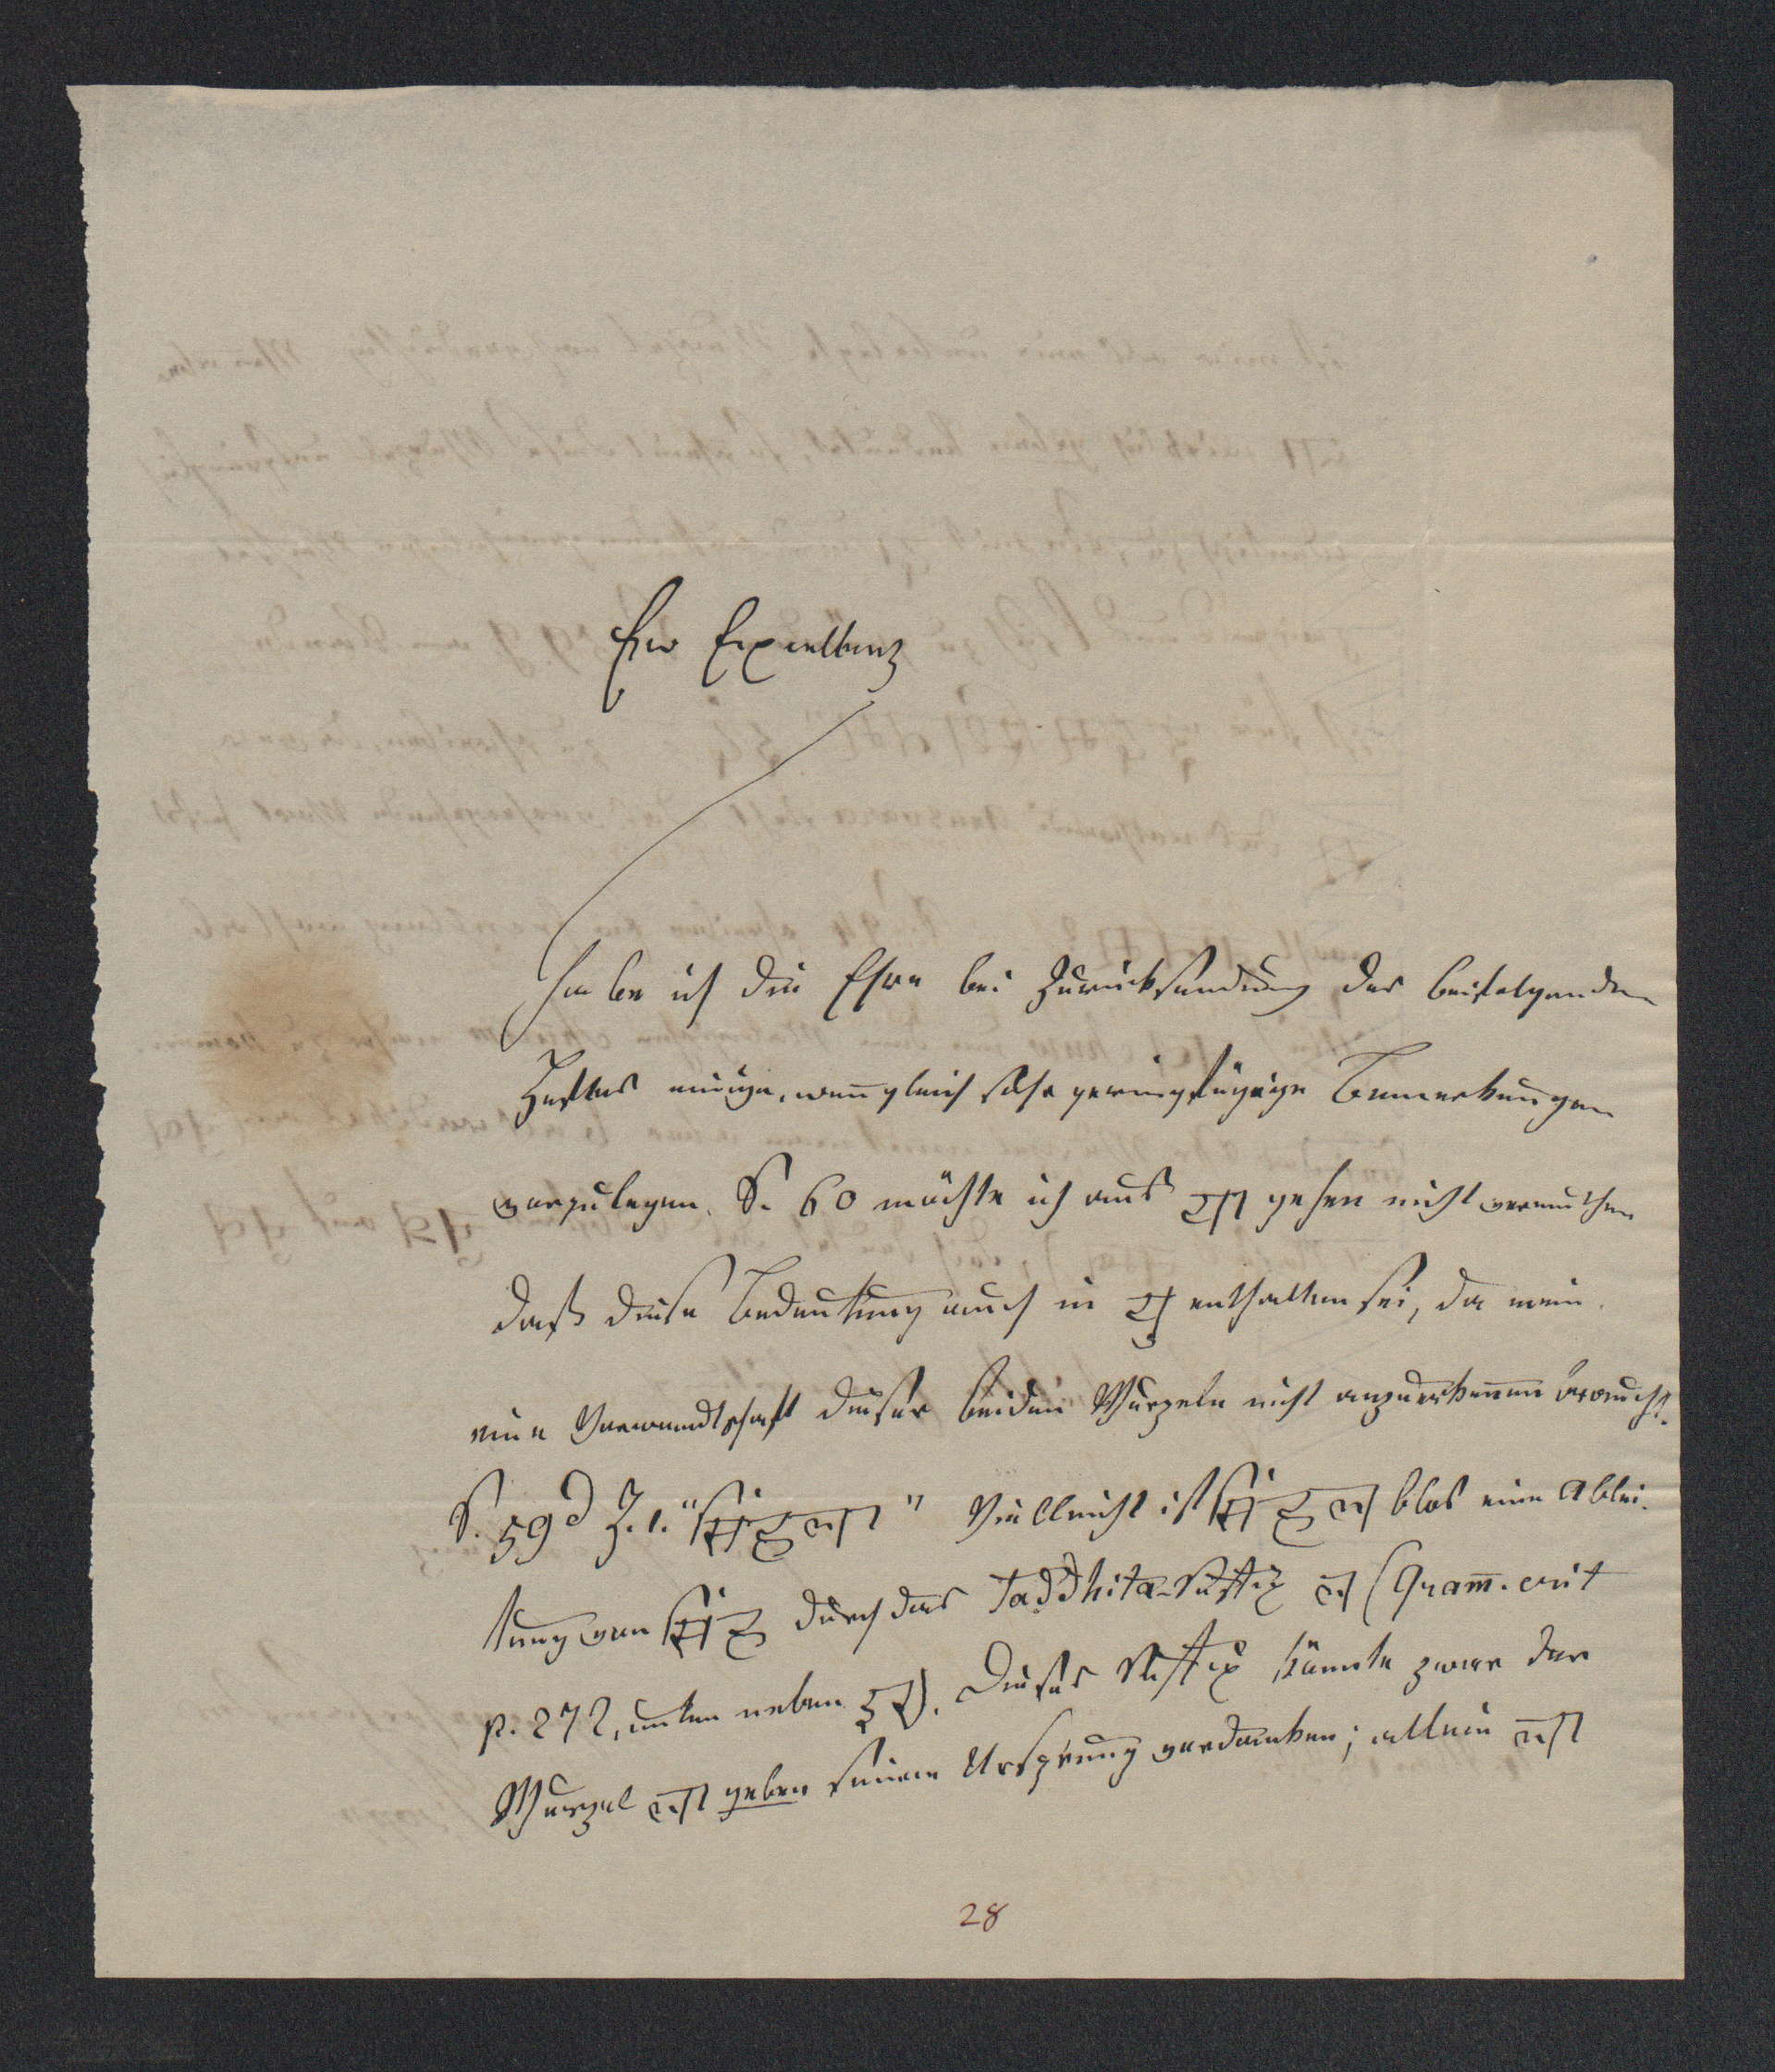 Ew Excellenz
habe ich die Ehre bei Zurücksendung des beifolgenden
Heftes einige, wen̅gleich sehr geringfügige Bemerkungen
vorzulegen. S. 60 möchte ich aus या gehen nicht vermuthen
daß diese Bedeutung auch in यु enthalten sei, da man
eine Verwandtschaft dieser beiden Wurzeln nicht anzuerken̅en braucht.
S. 59d Z. 1. "सिंहला" Vielleicht ist सिंहल blos eine Ablei-
tung von सिंह durch das Taddhita-Suffix ल (Gram̅. crit
p. 272, unten neben इल). Dieses Suffix kön̅te zwar der
Wurzel ला geben seinen Ursprung verdanken; allein ला
28